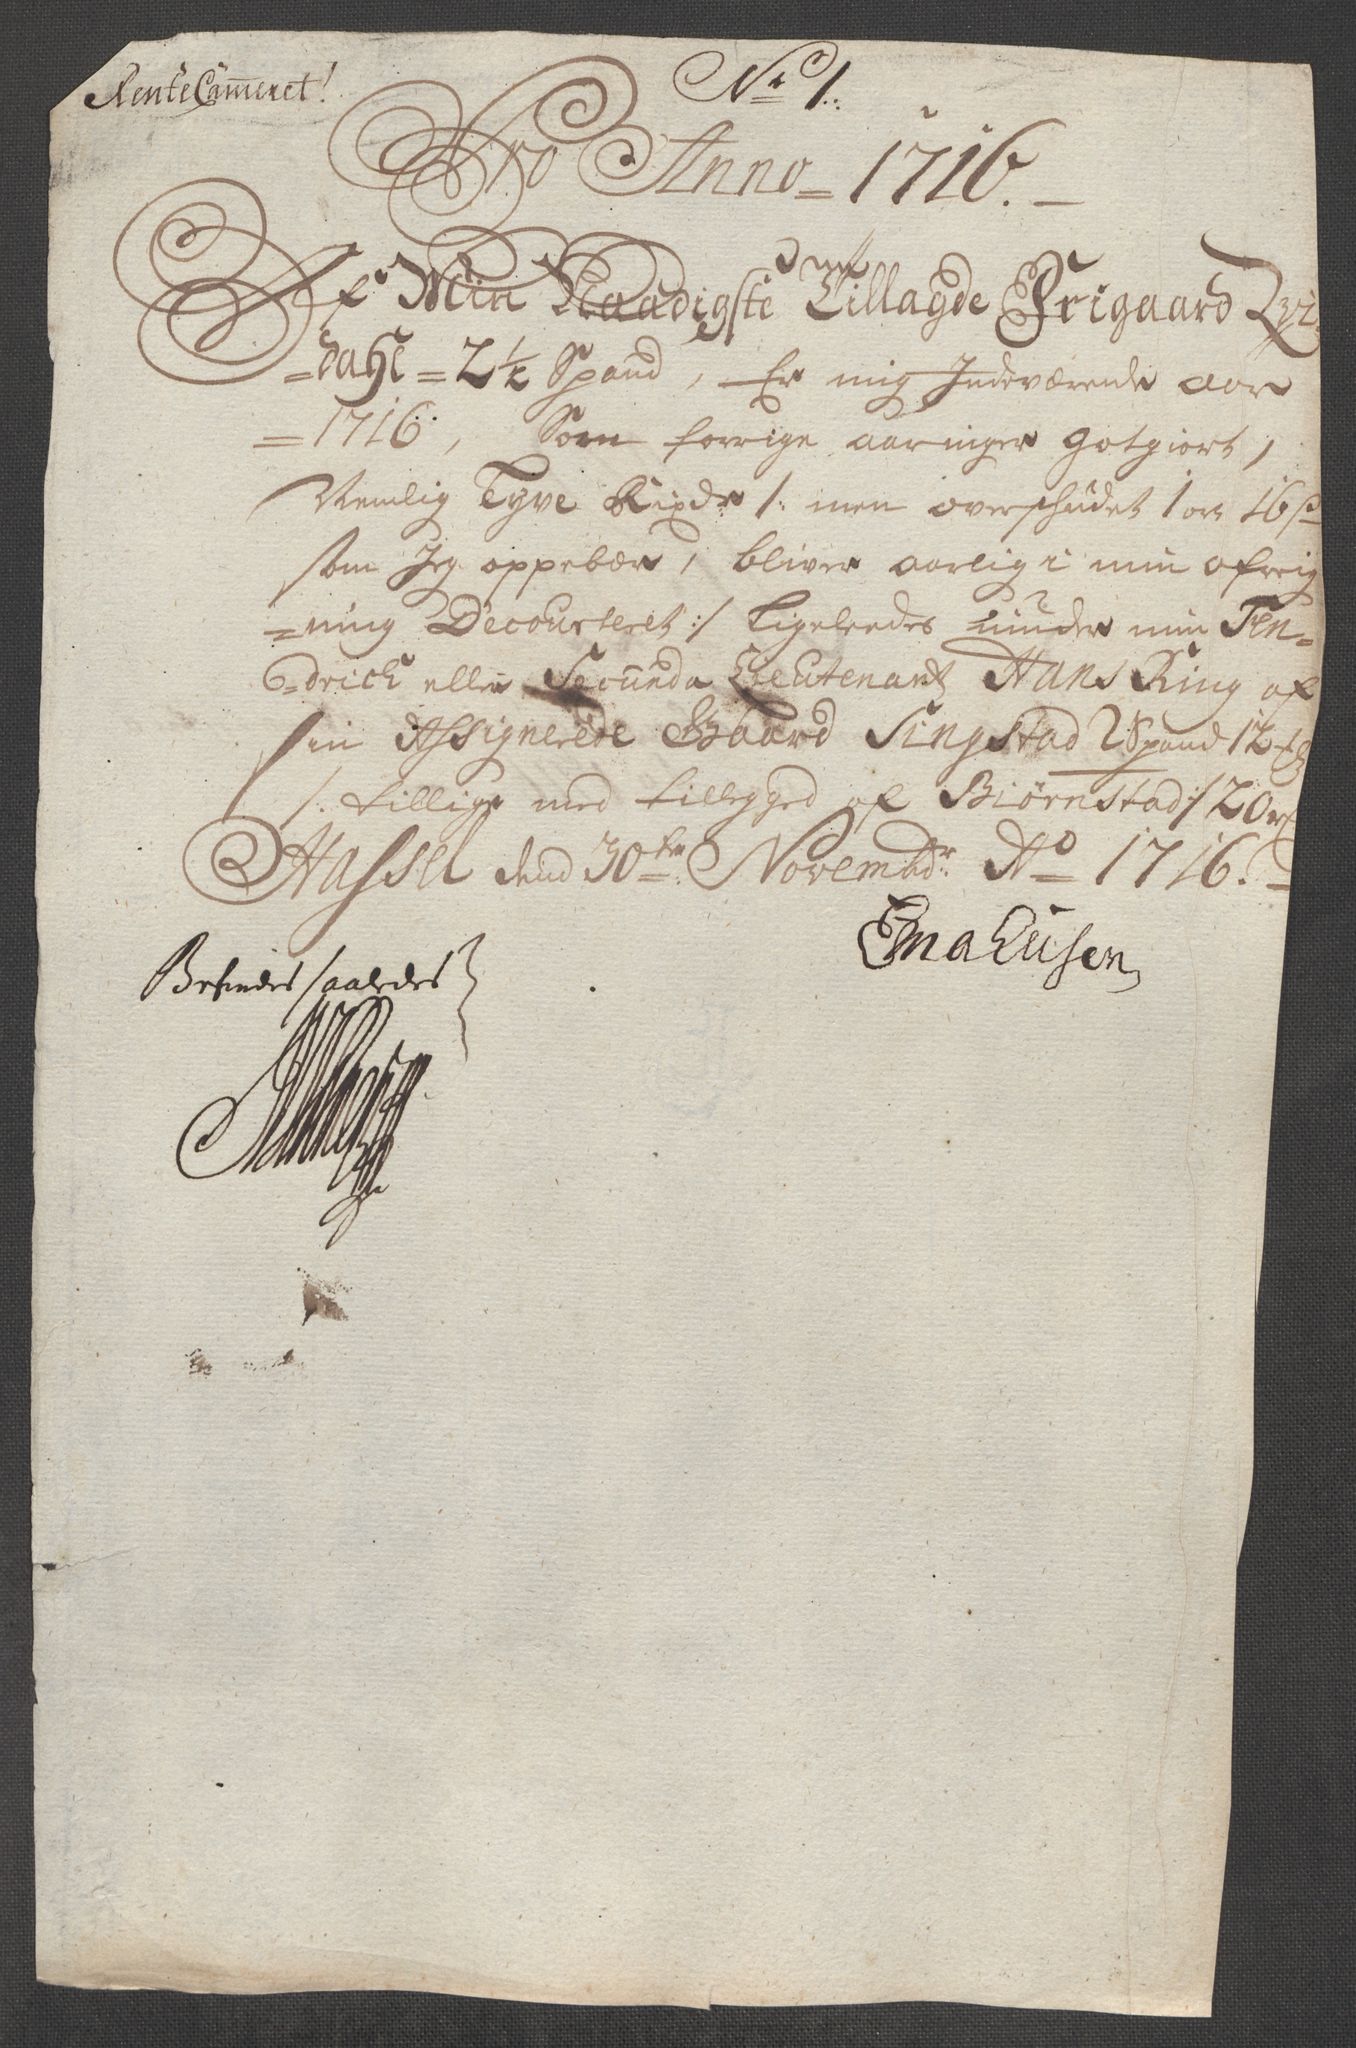 RenteCam̃eret!
No 1.
Pro Anno 1716.
Af Min Naadigste Tillagde Frigaard
=dahl = 2½ Spand, Er mig Indeværende aar
=1716, Som forrige aaringer gotgiort,
Nemlig Tyve Rixdr /: men overskudet 1 ort 16 s
som Jeg oppebær, bliver aarlig i min afreig
=ning Decourteret :/ Ligeleedes under min Fen=
=drich eller Secunda Lieutenant Hans Ring af
sin Assignerede Gaard Singstad 2 Spand 12
/: tillige med tillegged af Biørnstad :/ 20
Hassel dend 30te Novembr Ao 1716.
Befindes saaledes